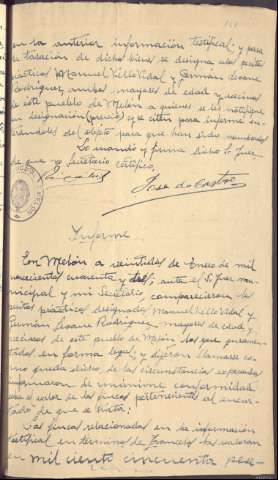 en la anterior información testifical; y para
la tasación de dichos bienes se designa a los peritos
prácticos Manuel Vello Vidal y Germán Seoane
Rodriguez, ambos mayores de edad y vecinos
de este pueblo de Melón a quienes se les notifique
su designación (previo) y se citen para informe
del objeto para que han sido nombrados
Lo mandó y firma dicho Sr. Juez
de que yo Secretario certifico.
Jose de Castro
Informe
En Melón a veintidos de Enero de mil
novecientos cuarenta y dos, ante el Sr. Juez mu-
nicipal y mi Secretario, comparecieron los
peritos prácticos designados Manuel Vello Vidal y
Germán Seoane Rodriguez, mayores de edad y
vecinos de este pueblo de Melón, los que juramen-
tados en forma legal; y dijeron llamarse co-
mo queda dicho, de las circunstancias expresadas
informaron de unánime conformidad
el valor de las fincas pertenecientes al encar-
tado de que se trata:
Las fincas relacionadas en la información
testifical en término de Francelos las valoran
en mil ciento cincuenta pese-